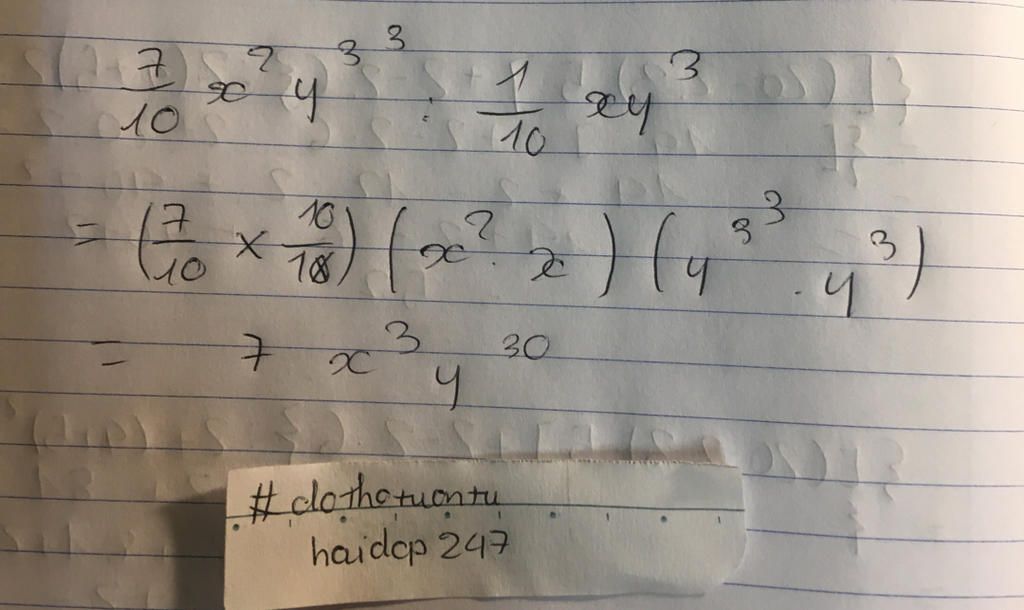 7/10 x² y³³ : 1/10 xy³
= (7/10 × 10/10) (x² . x) (y³³ . y³)
= 7 x³ y³⁰
# dothotuontu
haidcp 247